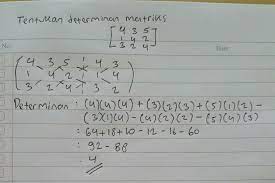 Tentukan determinan matriks
[4 3 5
1 4 2
3 2 4]
No.
Date
(4 3 5 | 4 3
1 4 2 | 1 4
3 2 4 | 3 2)
Determinan : (4)(4)(4) + (3)(2)(3) + (5)(1)(2) -
(3)(1)(4) - (4)(2)(2) - (5)(4)(3)
: 64 + 18 + 10 - 12 - 16 - 60
: 92 - 88
: 4